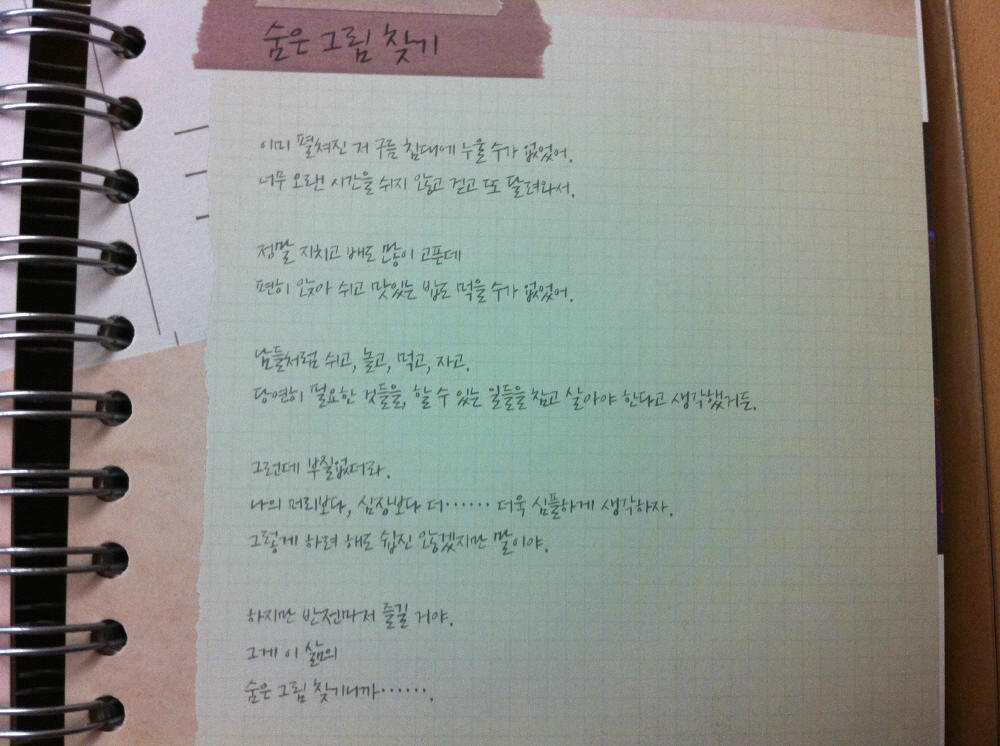 숨은 그림 찾기
이미 펼쳐진 저 구름 침대에 누울 수가 없었어.
너무 오랜 시간을 쉬지 않고 걷고 또 달려와서.
정말 지치고 배도 많이 고픈데
편히 앉아 쉬고 맛있는 밥도 먹을 수가 없었어.
남들처럼 쉬고, 놀고, 먹고, 자고.
당연히 필요한 것들을, 할 수 있는 일들을 참고 살아야 한다고 생각했거든.
그런데 부질없더라.
나의 머리보다, 심장보다 더…… 더욱 심플하게 생각하자.
그렇게 하려 해도 쉽진 않겠지만 말이야.
하지만 반전마저 즐길 거야.
그게 이 삶의
숨은 그림 찾기니까…….